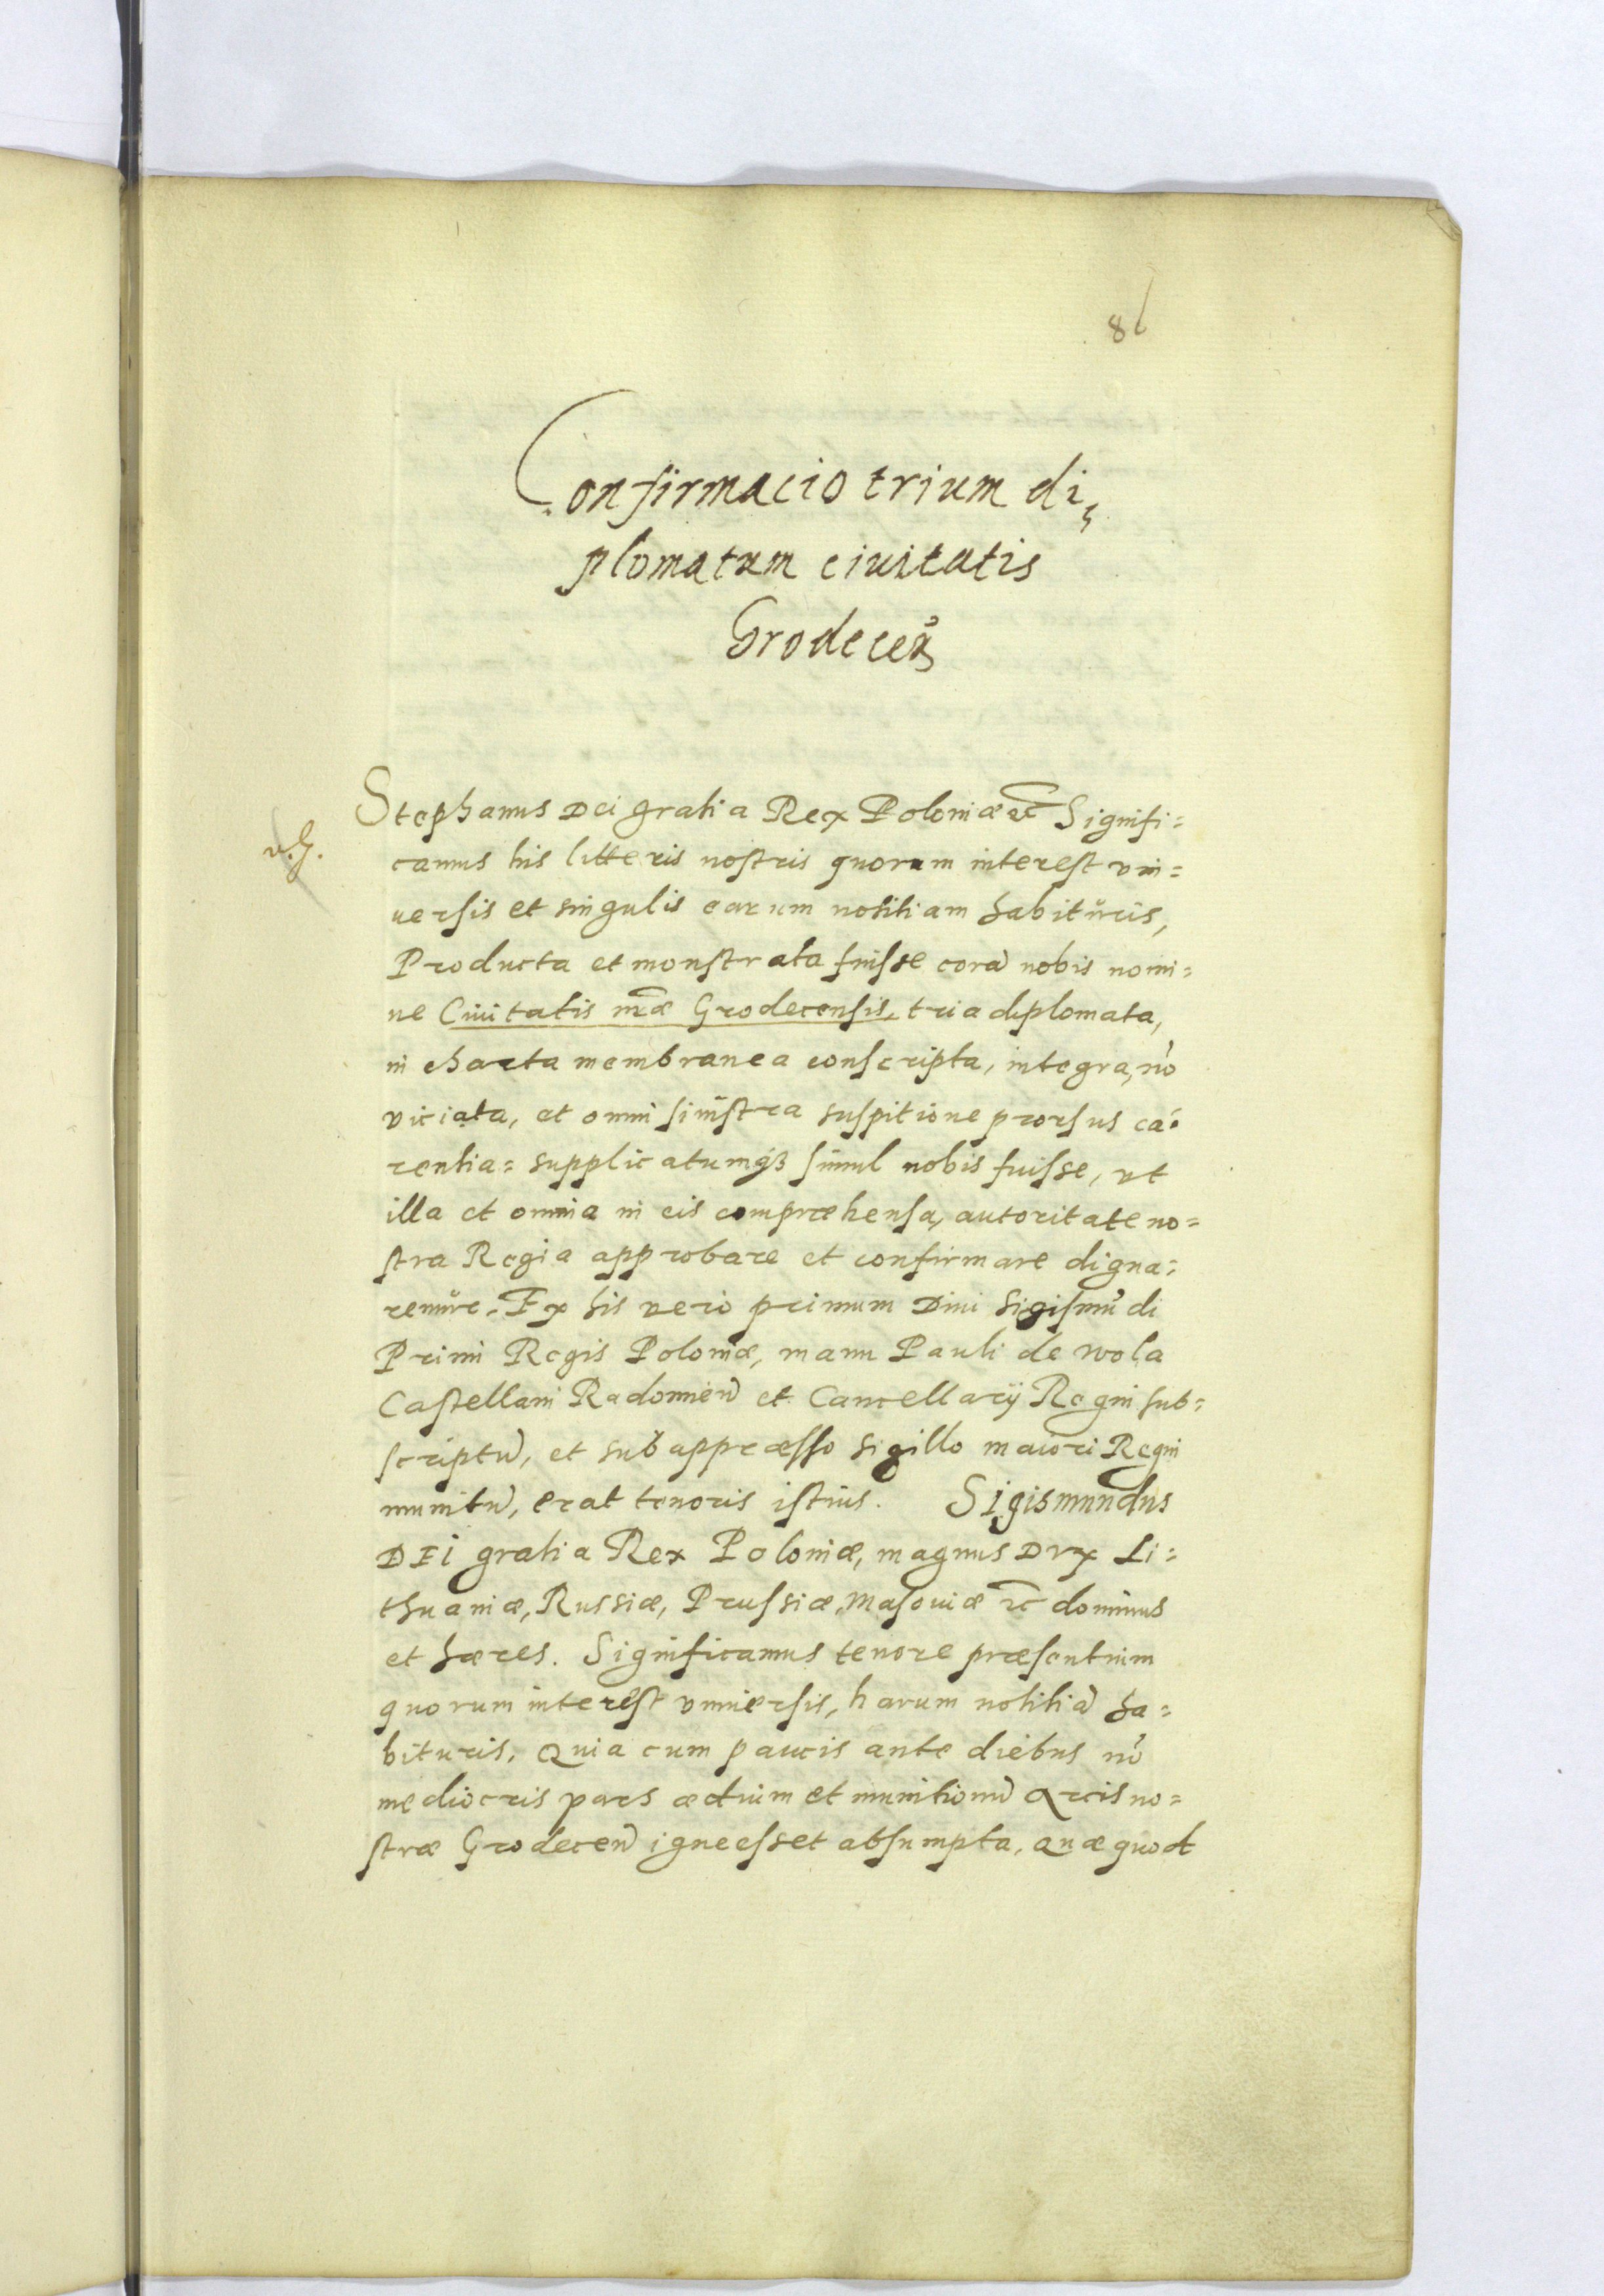 81
Confirmacio trium di¬
plomatum ciuitatis
Grodeceñ
Stephanus Dei gratia Rex Poloniæ etc̃ Signifi=
camus his litteris nostris quorum interest vni=
uersis et singulis earum notitiam habituris,
Producta et monstrata fuisse corā nobis nomi=
ne Ciuitatis nr̃æ Grodecensis, tria diplomata,
in charta membranea conscripta, integra, nō
viciata, et omni sinistra suspitione prorsus ca=
rentia= supplicatumq́3 simul nobis fuisse, vt
illa et omnia in eis compræhensa, autoritate no=
stra Regia approbare et confirmare digna=
remur. Ex his vero primum Diui Sigismū di
Primi Regis Poloniæ, manu Pauli de Wola
Castellani Radomień et Cancellarij Regni sub=
scriptū, et sub appræsso sigillo maiori Regni
munitū, erat tenoris istius. Sigismundus
DEI gratia Rex Poloniæ, magnus Dvx Li=
thuaniæ, Russiæ, Prussiæ, Masouiæ etc̃ dominus
et hæres. Significamus tenore præsentium
quorum interest vniuersis, harum notitiā ha=
bituris. Quia cum paucis ante diebus nō
mediocris pars ædium et munitionū Arcis no=
stræ Grodeceń igne esset absumpta, quæ quod